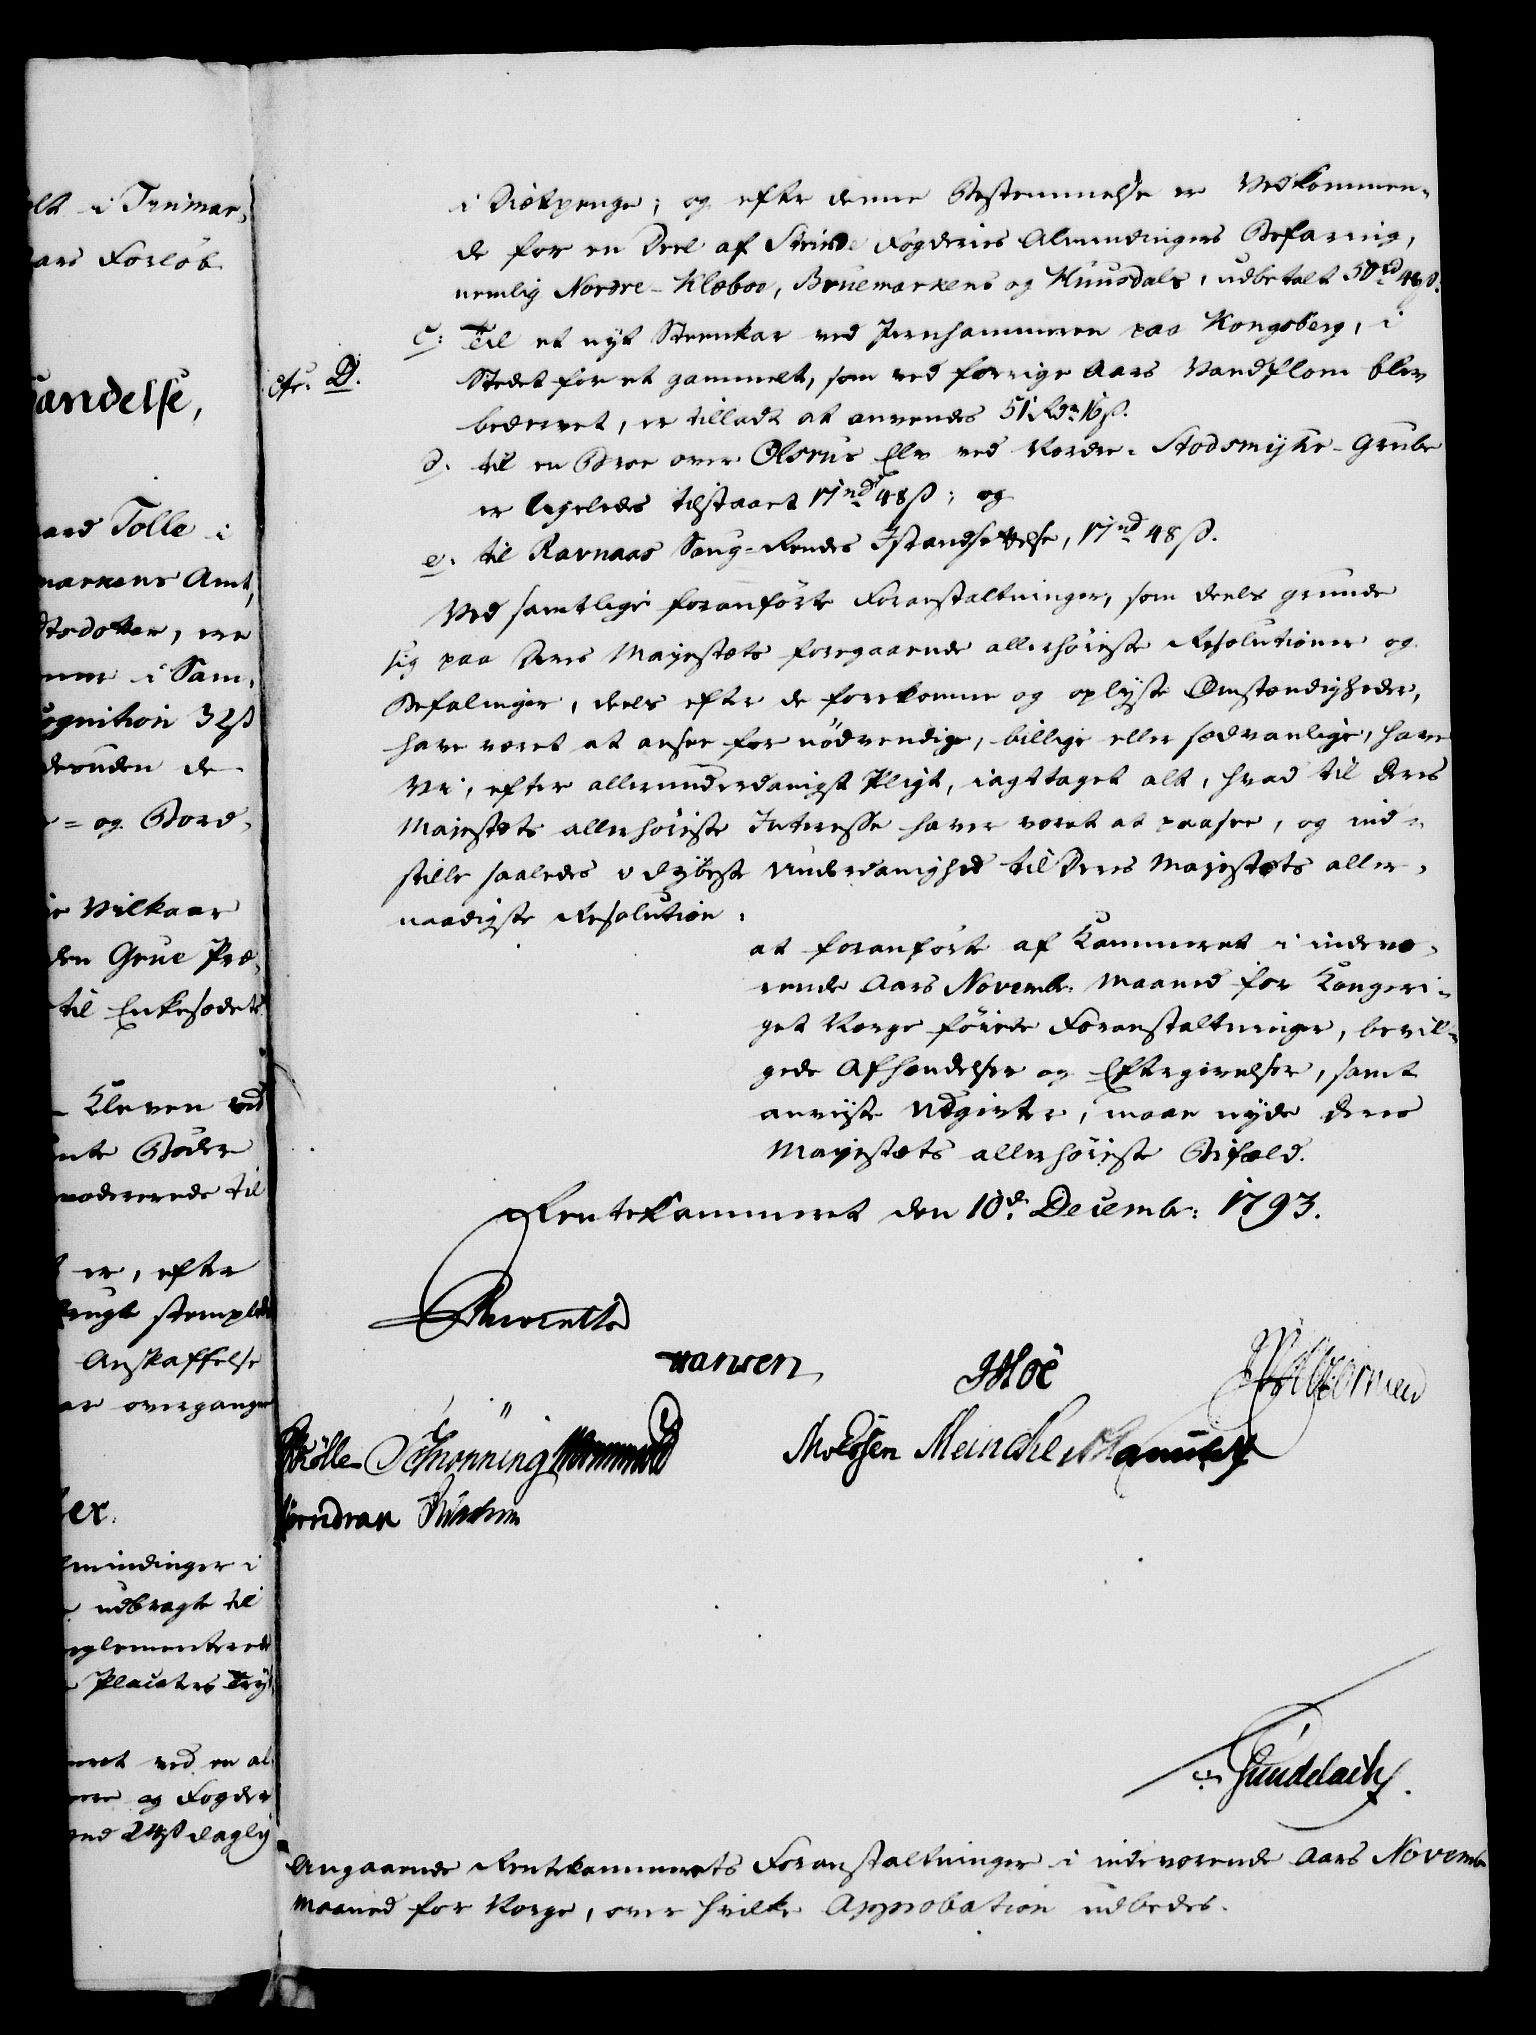 i Diætpenge; og efter denne Bestemmelse er Vedkommen-
de for en Deel af Strinde Fogderies Almindingers Befaring,
nemlig Nordre-Klæboe, Bruemarkens og Huusdals, udbetalt 50 rd 48 ß.
c: Til et nyt Steenkar ved Jernhammeren paa Kongsberg, i
cfr: D.
Stedet for et gammelt, som ved forrige Aars Vandflom blev
bedervet, er tilladt at anvendes 51 Rdr 16 ß.
d. til en Broe over Olsrus Elv ved Nordre-Skodsmyhr-Grube
er ligeledes tilstaaet 17 rd 48 ß; og
e. til Ravnaas Saug-Rendes Istandsættelse, 17 rd 48 ß.
Ved samtlige foranførte Foranstaltninger, som deels grunde
sig paa Deres Majestæts foregaaende allerhøieste Resolutioner og
Befalinger, deels efter de forekomne og oplyste Omstændigheder,
have været at ansee for nødvendige, billige eller sædvanlige, have
Vi, efter allerunderdanigst Pligt, iagttaget alt, hvad til Deres
Majestæts allerhøieste Interesse haver været at paasee, og ind-
stille saaledes i dybeste Underdanighed til Deres Majestæts aller-
naadigste Resolution:
at foranførte af Kammeret i indevæ-
rende Aars Novembr: Maaned for Kongeri-
get Norge føiede Foranstaltninger, bevil-
gede Afhændelser og Eftergivelser, samt
anviiste Udgivter, maae nyde Deres
Majestæts allerhøieste Bifald.
Rentekammeret den 10de Decembr: 1793.
Reventlo
Hansen
JHoë
Schønning
Moessen Meinche
Gundelach.
Angaaende Rentekammerets Foranstaltninger i indeværende Aars Novembr
Maaned for Norge, over hvilke Approbation udbedes.
ars Forløb
andelse,
ard Tolle i
markens Amt,
i Sam-
cognition 32 ß
desuden de
= og Bord-
Vilkaar
den Grue Præ-
til Enkesædets
Kleven ved
modererede til
er, efter
brugt stemplede
Anskaffelse
ar overgangne
lmindinger i
udbragte til
reglementerede
Placaters Try
meret ved en al-
og Fogder
24 ß daglig